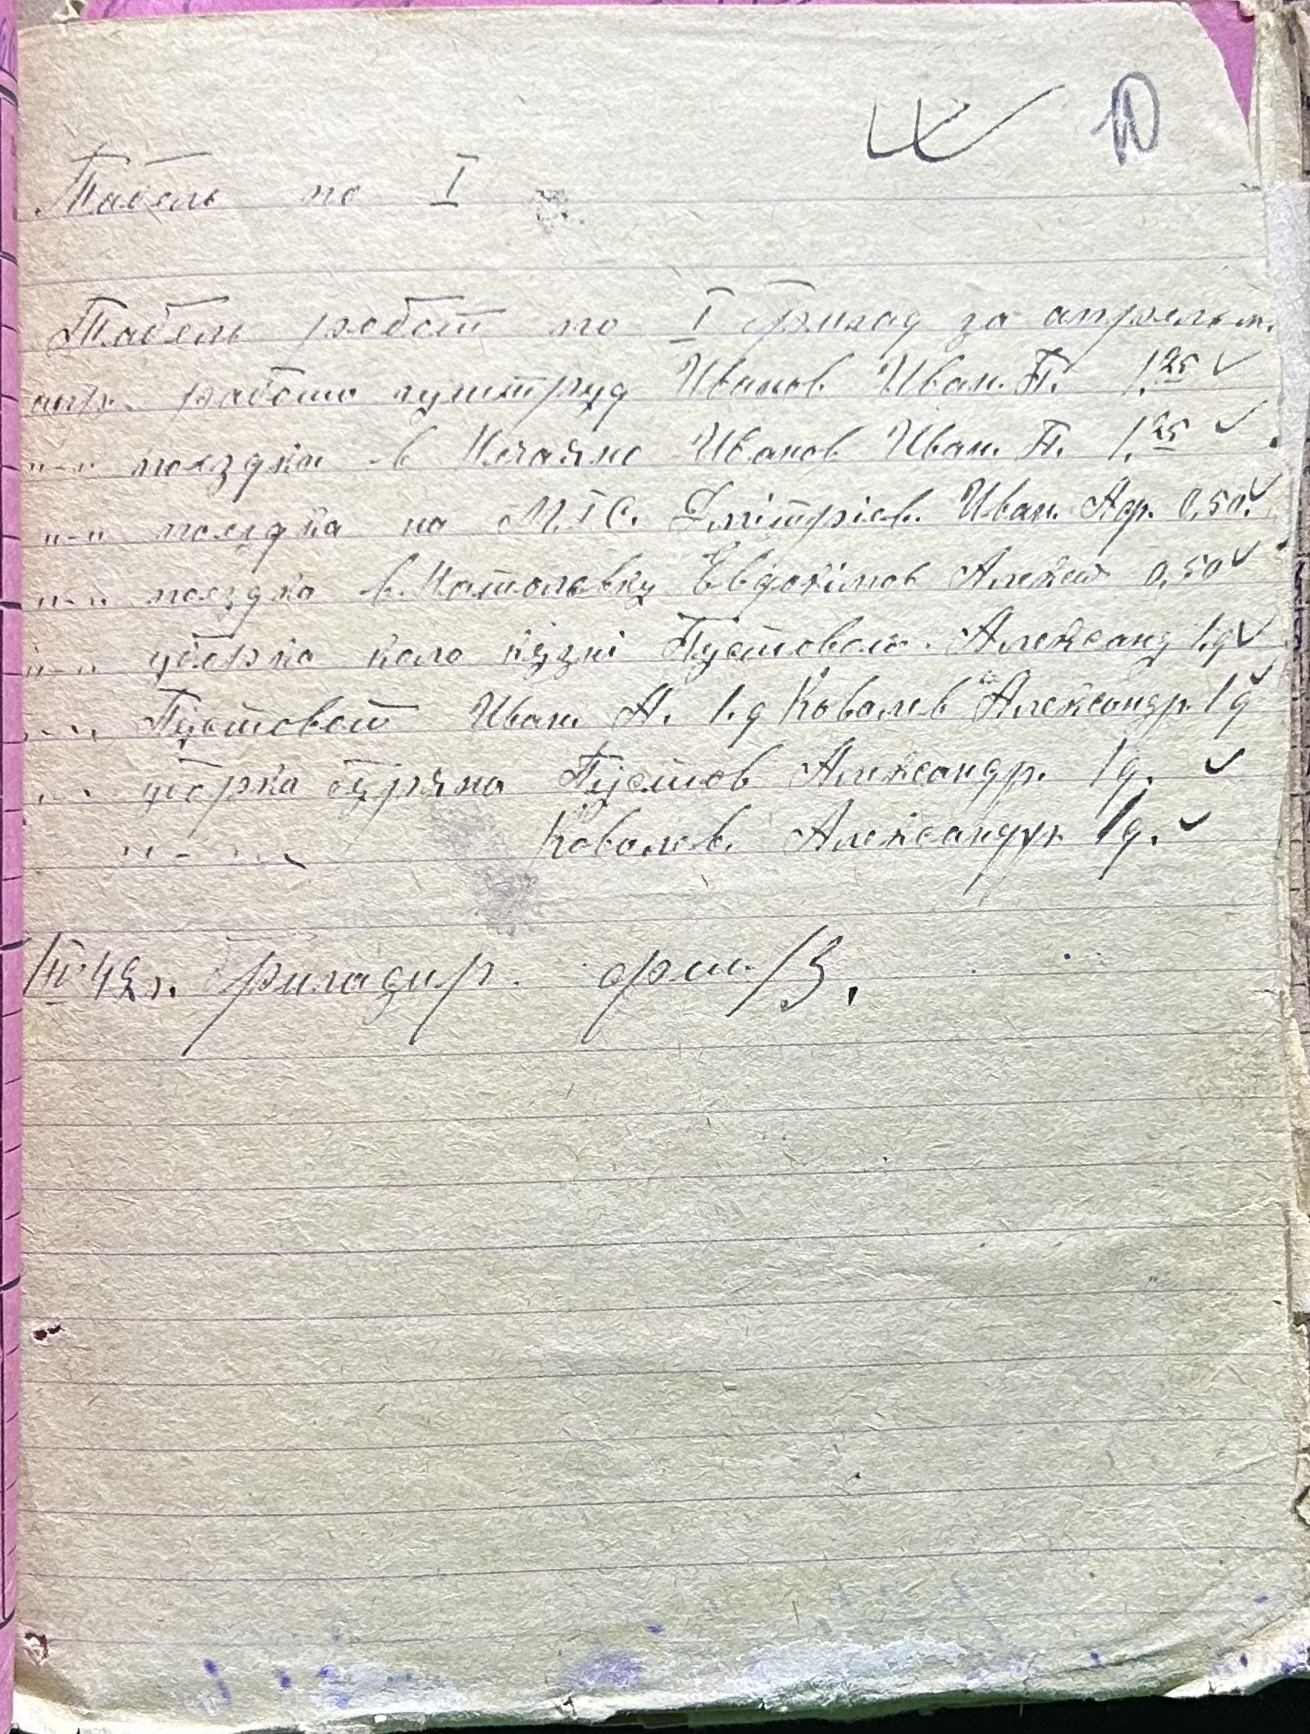 10
Табель по I
Табель работ по I бригад за апрель м.
апр. работа Иванов Иван. П. 1.25
"-" поездка в Нечаяно Иванов Иван. П. 1.25
"-" поездка на М.Т.С. Дмітріев. Иван. Аф. 0,50.
"-" поездка в Евдокімов Алексей 0,50
"-" уборка коло кузні Пустовой. Александ 1.д
"-" Пустовой Иван. А. 1.д Ковалев Александр. 1д
"-" уборка буряна Пустов Александр. 1д.
"-" Ковалев. Александр. 1д.
42 г. Бригадир.